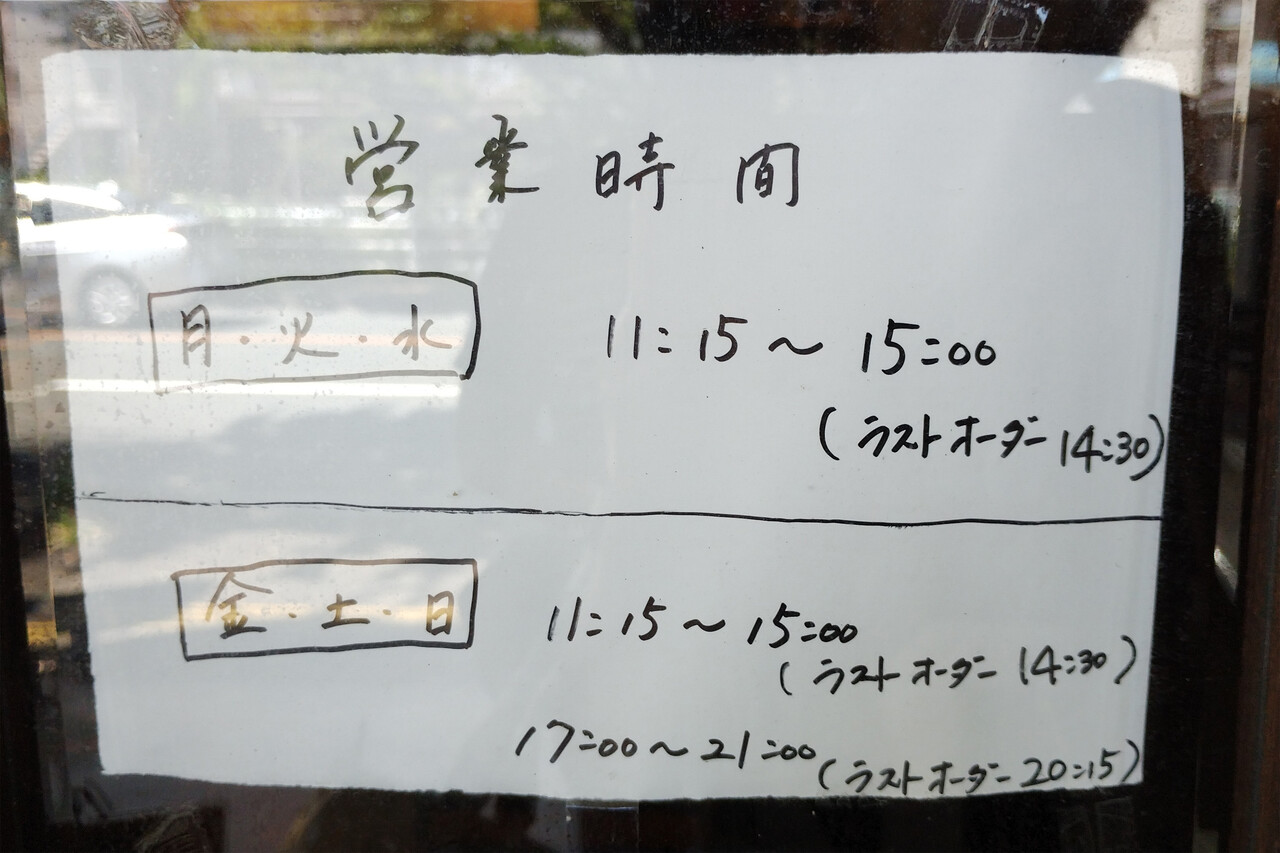 営業時間
月・火・水 11:15～15:00
(ラストオーダー 14:30)
金・土・日 11:15～15:00
(ラストオーダー 14:30)
17:00～21:00 (ラストオーダー 20:15)